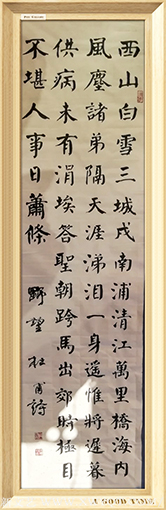 西山白雪三城戍南浦清江萬里橋海內
風塵諸弟隔天涯涕泪一身遙惟將遲暮
供病未有涓埃答聖朝跨馬出郊時極目
不堪人事日蕭條 野望 杜甫詩
A GOOD TIME